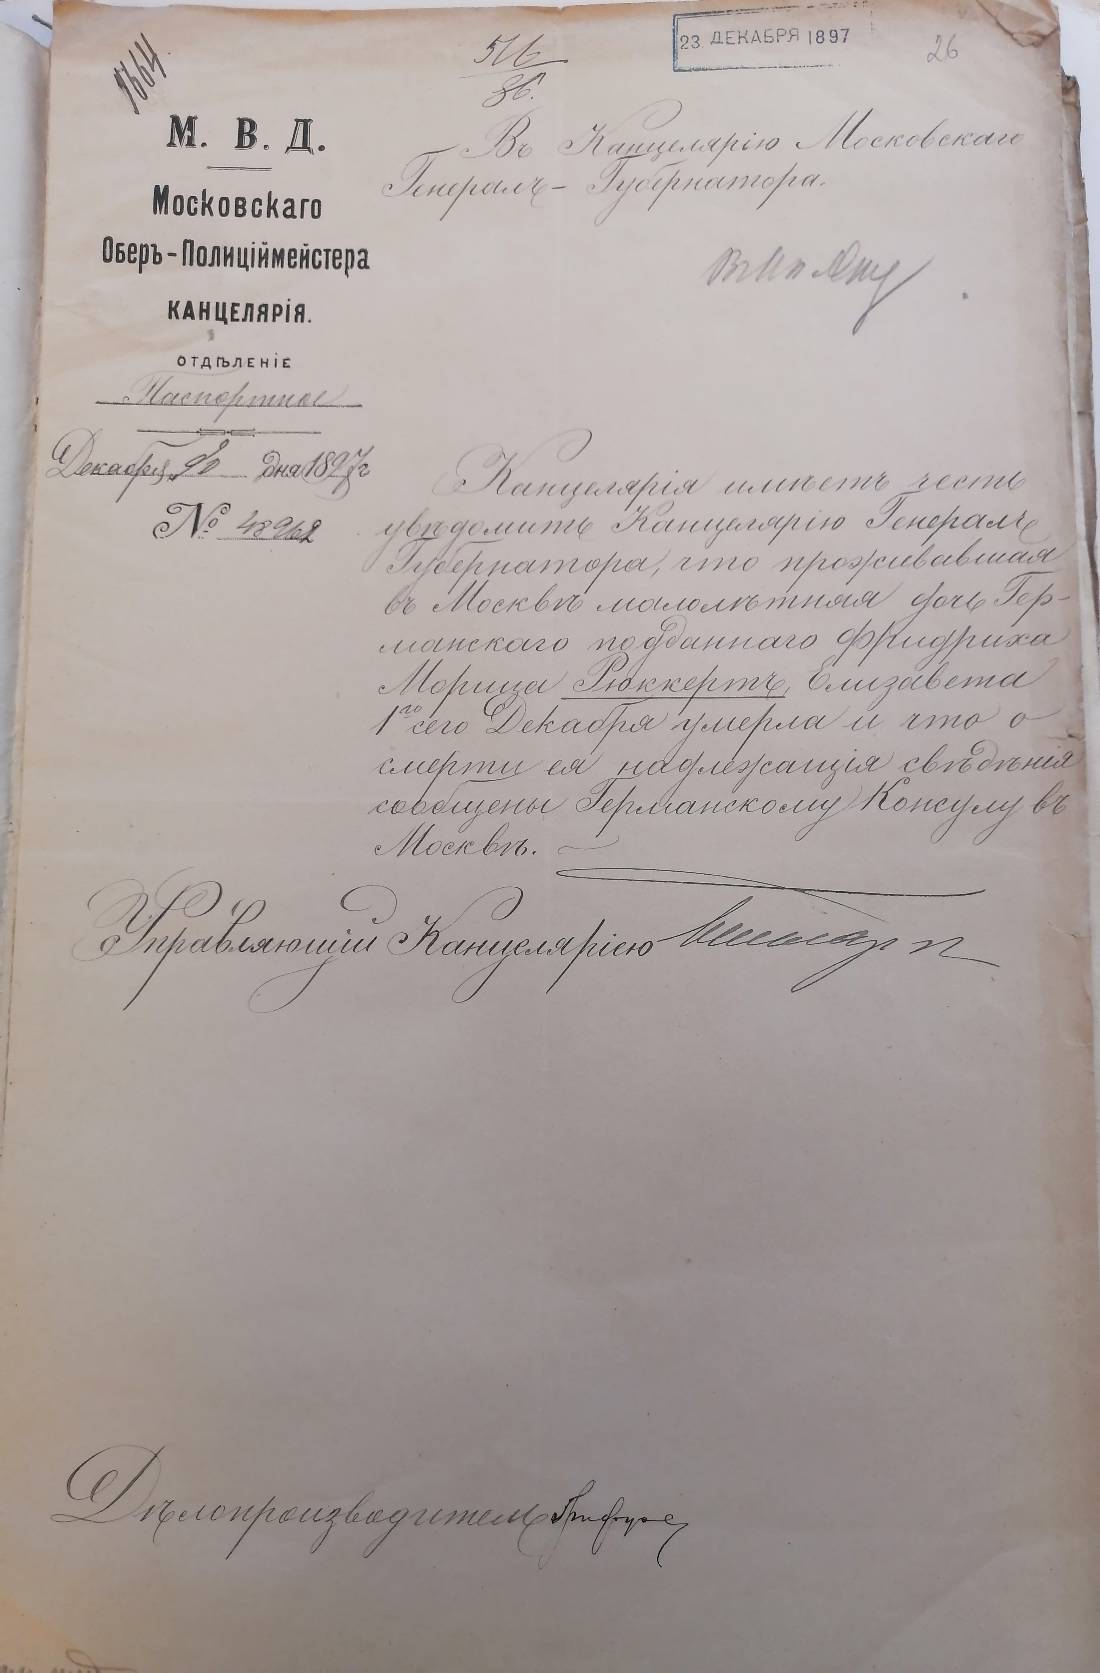 23 ДЕКАБРЯ 1897
26
516
86.
М. В. Д.
Московскаго
Оберъ-Полиціймейстера
КАНЦЕЛЯРІЯ.
ОТДѢЛЕНІЕ
Паспортное
Декабря дня 1897 г
№ 48962
Въ Канцелярію Московскаго
Генералъ-Губернатора.
Канцелярія имѣетъ честь
увѣдомить Канцелярію Генералъ
Губернатора, что проживавшая
въ Москвѣ малолѣтняя дочь Гер-
манскаго подданнаго Фридриха
Морица Рюккертъ, Елизавета
1го сего Декабря умерла и что о
смерти ея надлежащія свѣдѣнія
сообщены Германскому Консулу въ
Москвѣ.
Управляющій Канцеляріею
Дѣлопроизводитель